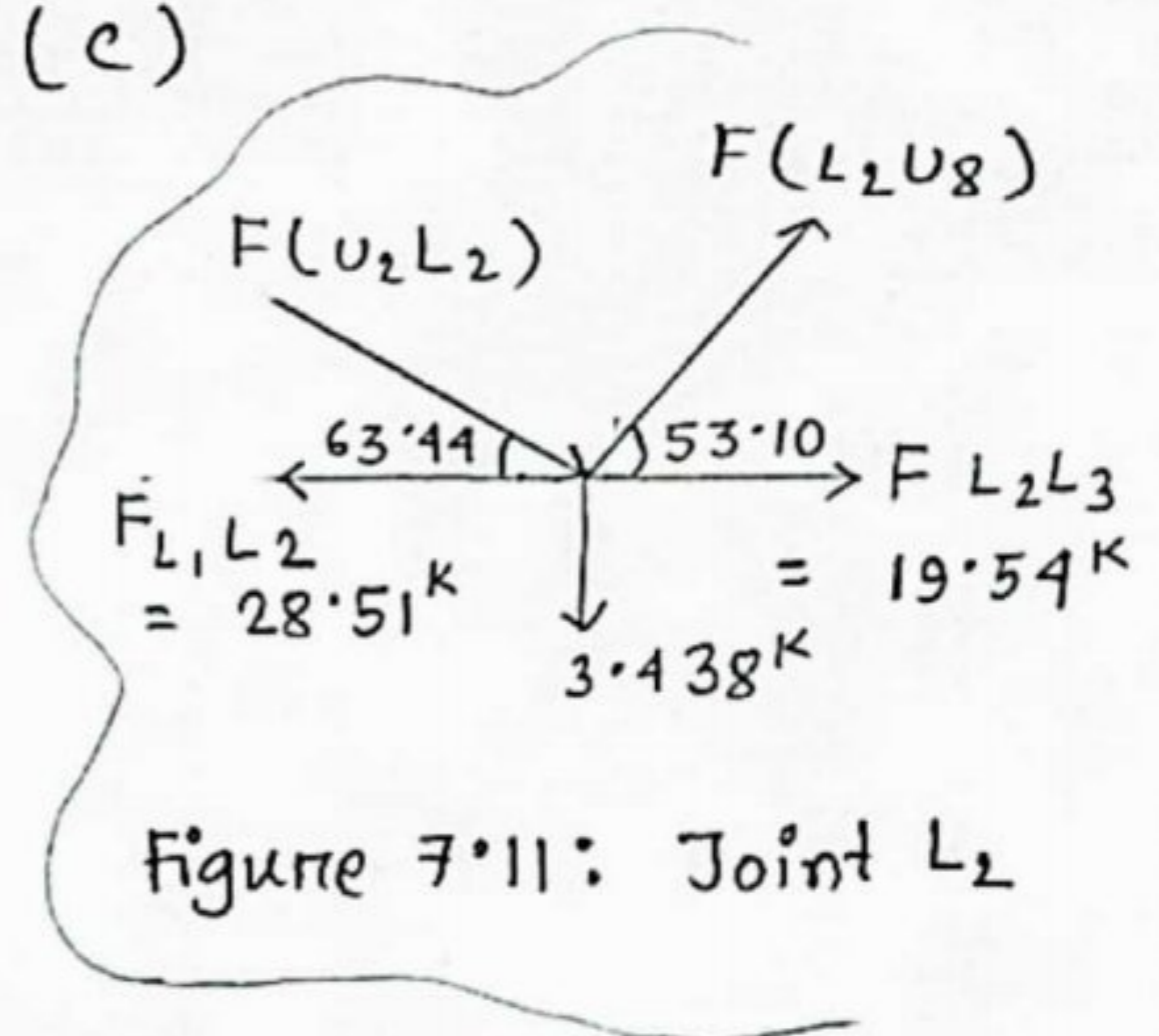 (c)
F(L2U8)
F(U2L2)
63·44
53·10
F L2L3
= 19·54K
FL1L2
= 28·51K
3·438K
Figure 7·11: Joint L2